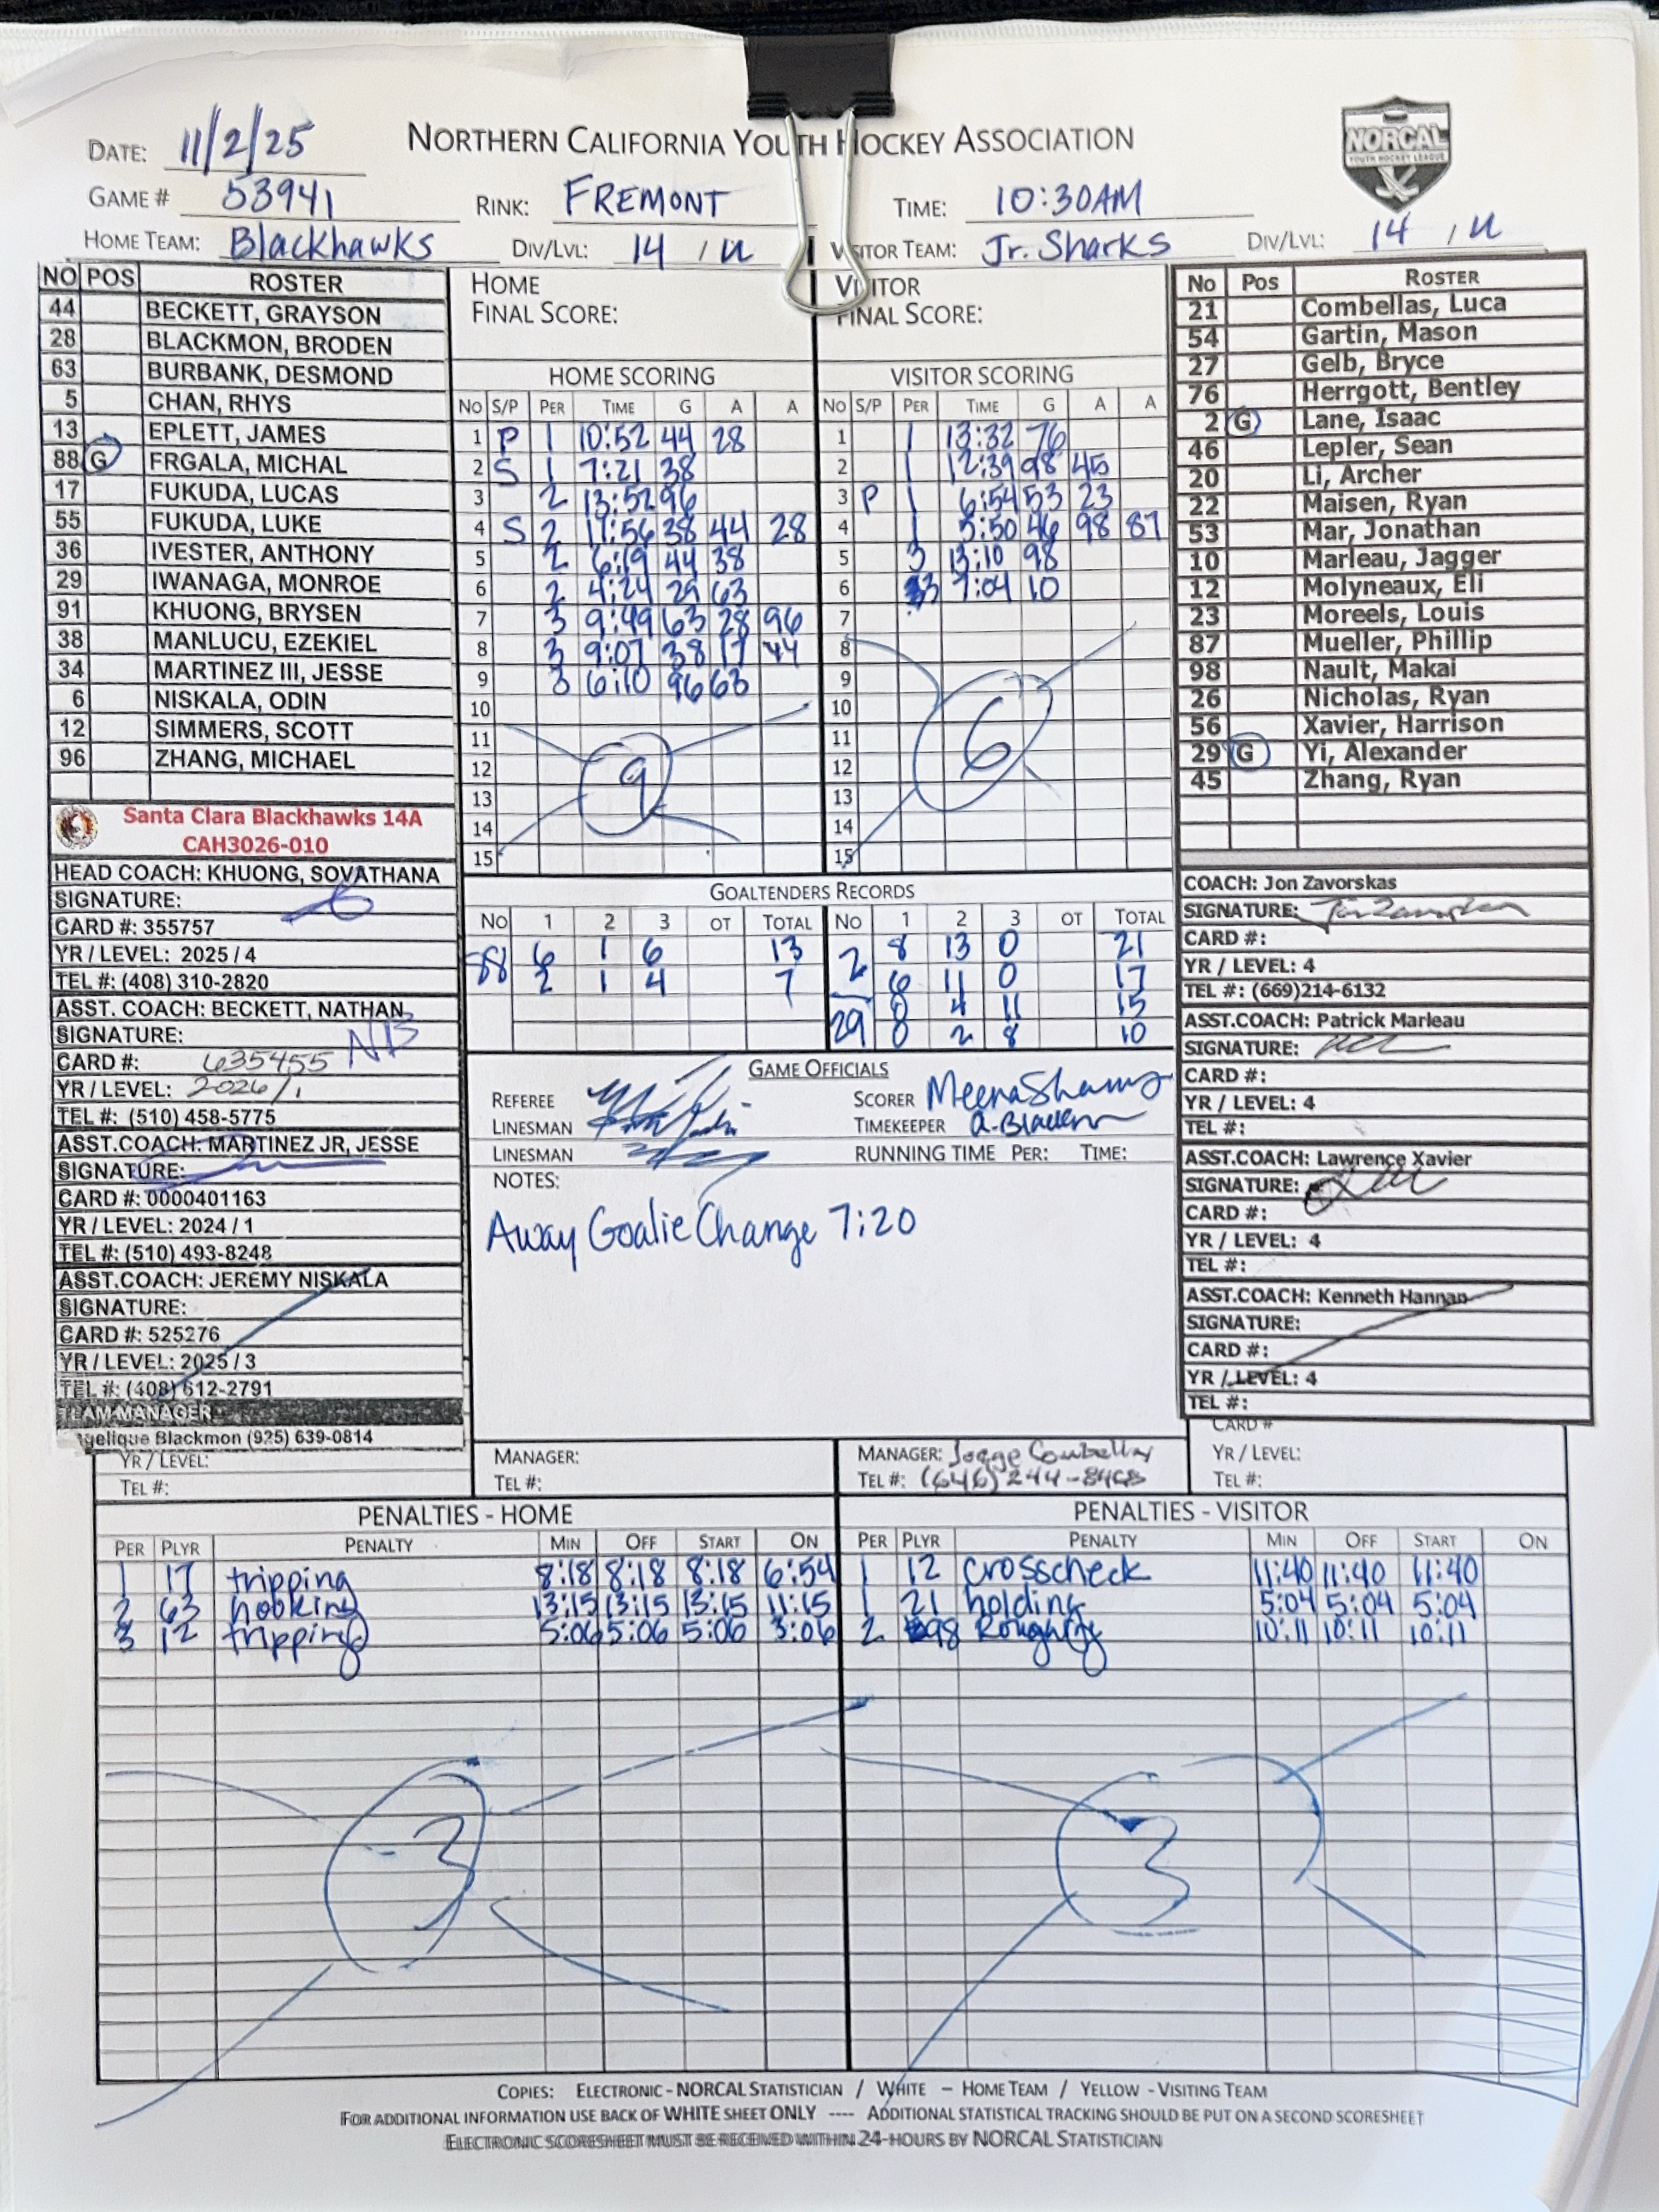 NORTHERN CALIFORNIA YOUTH HOCKEY ASSOCIATION
NORCAL
YOUTH HOCKEY LEAGUE
DATE: 11/2/25
GAME # 53941 RINK: FREMONT TIME: 10:30AM
HOME TEAM: Blackhawks DIV/LVL: 14 / U VISITOR TEAM: Jr. Sharks DIV/LVL: 14 / U
NO POS ROSTER
44 BECKETT, GRAYSON
28 BLACKMON, BRODEN
63 BURBANK, DESMOND
5 CHAN, RHYS
13 EPLETT, JAMES
88 G FRGALA, MICHAL
17 FUKUDA, LUCAS
55 FUKUDA, LUKE
36 IVESTER, ANTHONY
29 IWANAGA, MONROE
91 KHUONG, BRYSEN
38 MANLUCU, EZEKIEL
34 MARTINEZ III, JESSE
6 NISKALA, ODIN
12 SIMMERS, SCOTT
96 ZHANG, MICHAEL
Santa Clara Blackhawks 14A
CAH3026-010
HEAD COACH: KHUONG, SOVATHANA
SIGNATURE:
CARD #: 355757
YR / LEVEL: 2025 / 4
TEL #: (408) 310-2820
ASST. COACH: BECKETT, NATHAN
SIGNATURE: NB
CARD #: 635455
YR / LEVEL: 2026/1
TEL #: (510) 458-5775
ASST.COACH: MARTINEZ JR, JESSE
SIGNATURE:
CARD #: 0000401163
YR / LEVEL: 2024 / 1
TEL #: (510) 493-8248
ASST.COACH: JEREMY NISKALA
SIGNATURE:
CARD #: 525276
YR / LEVEL: 2025 / 3
TEL #: (408) 612-2791
TEAM MANAGER
gelique Blackmon (925) 639-0814
YR / LEVEL:
TEL #:
HOME
FINAL SCORE:
HOME SCORING
NO S/P PER TIME G A A
1 P 1 10:52 44 28
2 S 1 7:21 38
3 2 13:52 96
4 S 2 11:56 38 44 28
5 2 6:19 44 38
6 2 4:24 29 63
7 3 9:49 63 28 96
8 3 9:07 38 17 44
9 3 6:10 96 63
10
11
12
13
14
15
9
VISITOR
FINAL SCORE:
VISITOR SCORING
NO S/P PER TIME G A A
1 1 13:32 76
2 1 12:39 98 45
3 P 1 6:54 53 23
4 1 5:50 46 98 87
5 3 13:10 98
6 3 7:04 10
7
8
9
10
11
12
13
14
15
6
GOALTENDERS RECORDS
NO 1 2 3 OT TOTAL NO 1 2 3 OT TOTAL
88 6 1 6 13 2 8 13 0 21
2 1 4 7 6 11 0 17
29 0 4 11 15
0 2 8 10
GAME OFFICIALS
REFEREE SCORER Meena
LINESMAN TIMEKEEPER
LINESMAN RUNNING TIME PER: TIME:
NOTES:
Away Goalie Change 7:20
MANAGER:
TEL #:
MANAGER: Jorge
TEL #: (646) 244-8468
No Pos ROSTER
21 Combellas, Luca
54 Gartin, Mason
27 Gelb, Bryce
76 Herrgott, Bentley
2 G Lane, Isaac
46 Lepler, Sean
20 Li, Archer
22 Maisen, Ryan
53 Mar, Jonathan
10 Marleau, Jagger
12 Molyneaux, Eli
23 Moreels, Louis
87 Mueller, Phillip
98 Nault, Makai
26 Nicholas, Ryan
56 Xavier, Harrison
29 G Yi, Alexander
45 Zhang, Ryan
COACH: Jon Zavorskas
SIGNATURE:
CARD #:
YR / LEVEL: 4
TEL #: (669)214-6132
ASST.COACH: Patrick Marleau
SIGNATURE:
CARD #:
YR / LEVEL: 4
TEL #:
ASST.COACH: Lawrence Xavier
SIGNATURE:
CARD #:
YR / LEVEL: 4
TEL #:
ASST.COACH: Kenneth Hannan
SIGNATURE:
CARD #:
YR / LEVEL: 4
TEL #:
CARD #
YR / LEVEL:
TEL #:
PENALTIES - HOME
PER PLYR PENALTY MIN OFF START ON
1 17 tripping 8:18 8:18 8:18 6:54
2 63 hooking 13:15 13:15 13:15 11:15
3 12 tripping 5:06 5:06 5:06 3:06
3
PENALTIES - VISITOR
PER PLYR PENALTY MIN OFF START ON
1 12 crosscheck 11:40 11:40 11:40
1 21 holding 5:04 5:04 5:04
2 98 Roughing 10:11 10:11 10:11
3
COPIES: ELECTRONIC - NORCAL STATISTICIAN / WHITE – HOME TEAM / YELLOW - VISITING TEAM
FOR ADDITIONAL INFORMATION USE BACK OF WHITE SHEET ONLY ---- ADDITIONAL STATISTICAL TRACKING SHOULD BE PUT ON A SECOND SCORESHEET
ELECTRONIC SCORESHEET MUST BE RECEIVED WITHIN 24-HOURS BY NORCAL STATISTICIAN